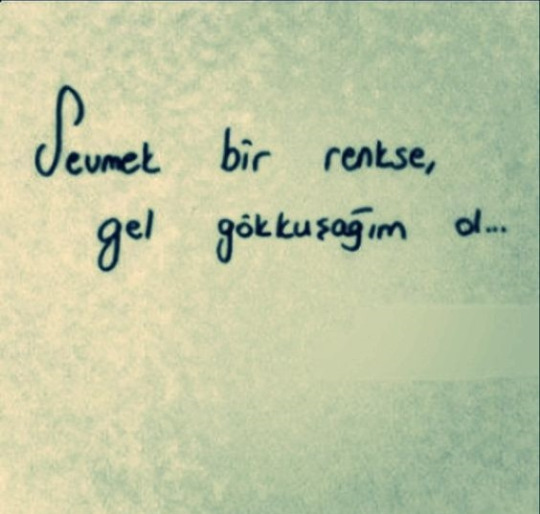 Sevmek bir renkse,
gel gökkuşağım ol...